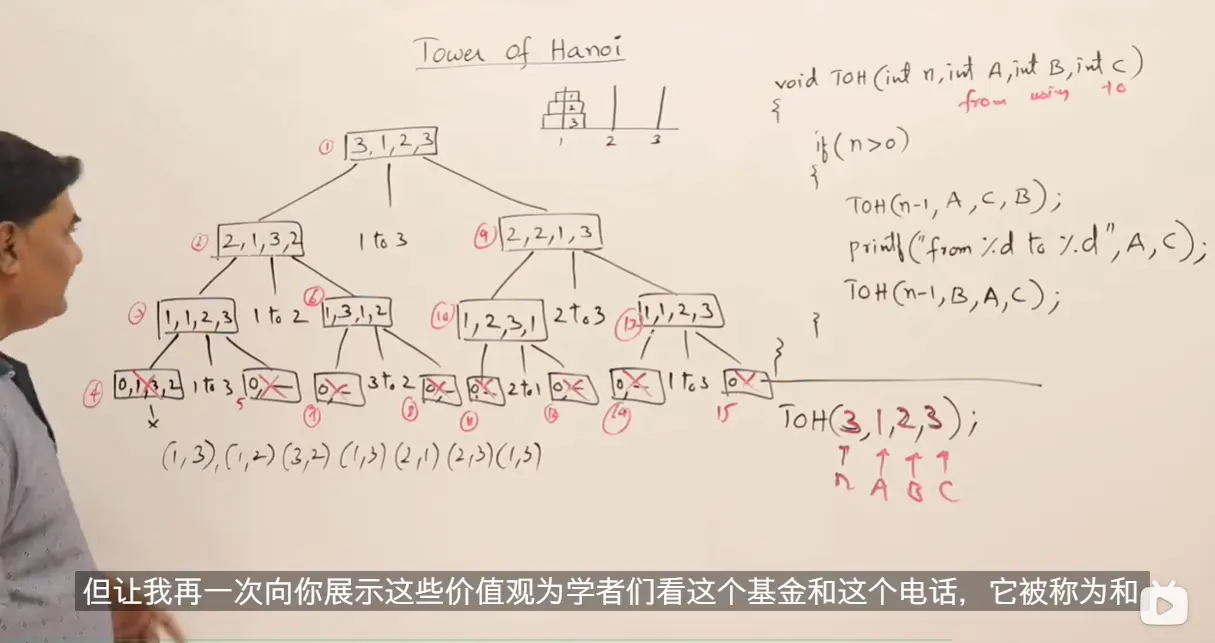 Tower of Hanoi
1
2
3
1 2 3
① 3,1,2,3
② 2,1,3,2 1 to 3 ⑨ 2,2,1,3
③ 1,1,2,3 1 to 2 ⑥ 1,3,1,2 ⑩ 1,2,3,1 2 to 3 ⑬ 1,1,2,3
④ 0,1,3,2 1 to 3 5 0, 3 to 2 ⑧ 0, ⑪ 0, 2 to 1 0, ⑭ 0, 1 to 3 15 0
x
(1,3),(1,2)(3,2)(1,3)(2,1)(2,3)(1,3)
void TOH(int n,int A,int B,int C)
from using to
{
if(n>0)
{
TOH(n-1,A,C,B);
printf("from %d to %d",A,C);
TOH(n-1,B,A,C);
}
}
TOH(3,1,2,3);
n A B C
但让我再一次向你展示这些价值观为学者们看这个基金和这个电话，它被称为和